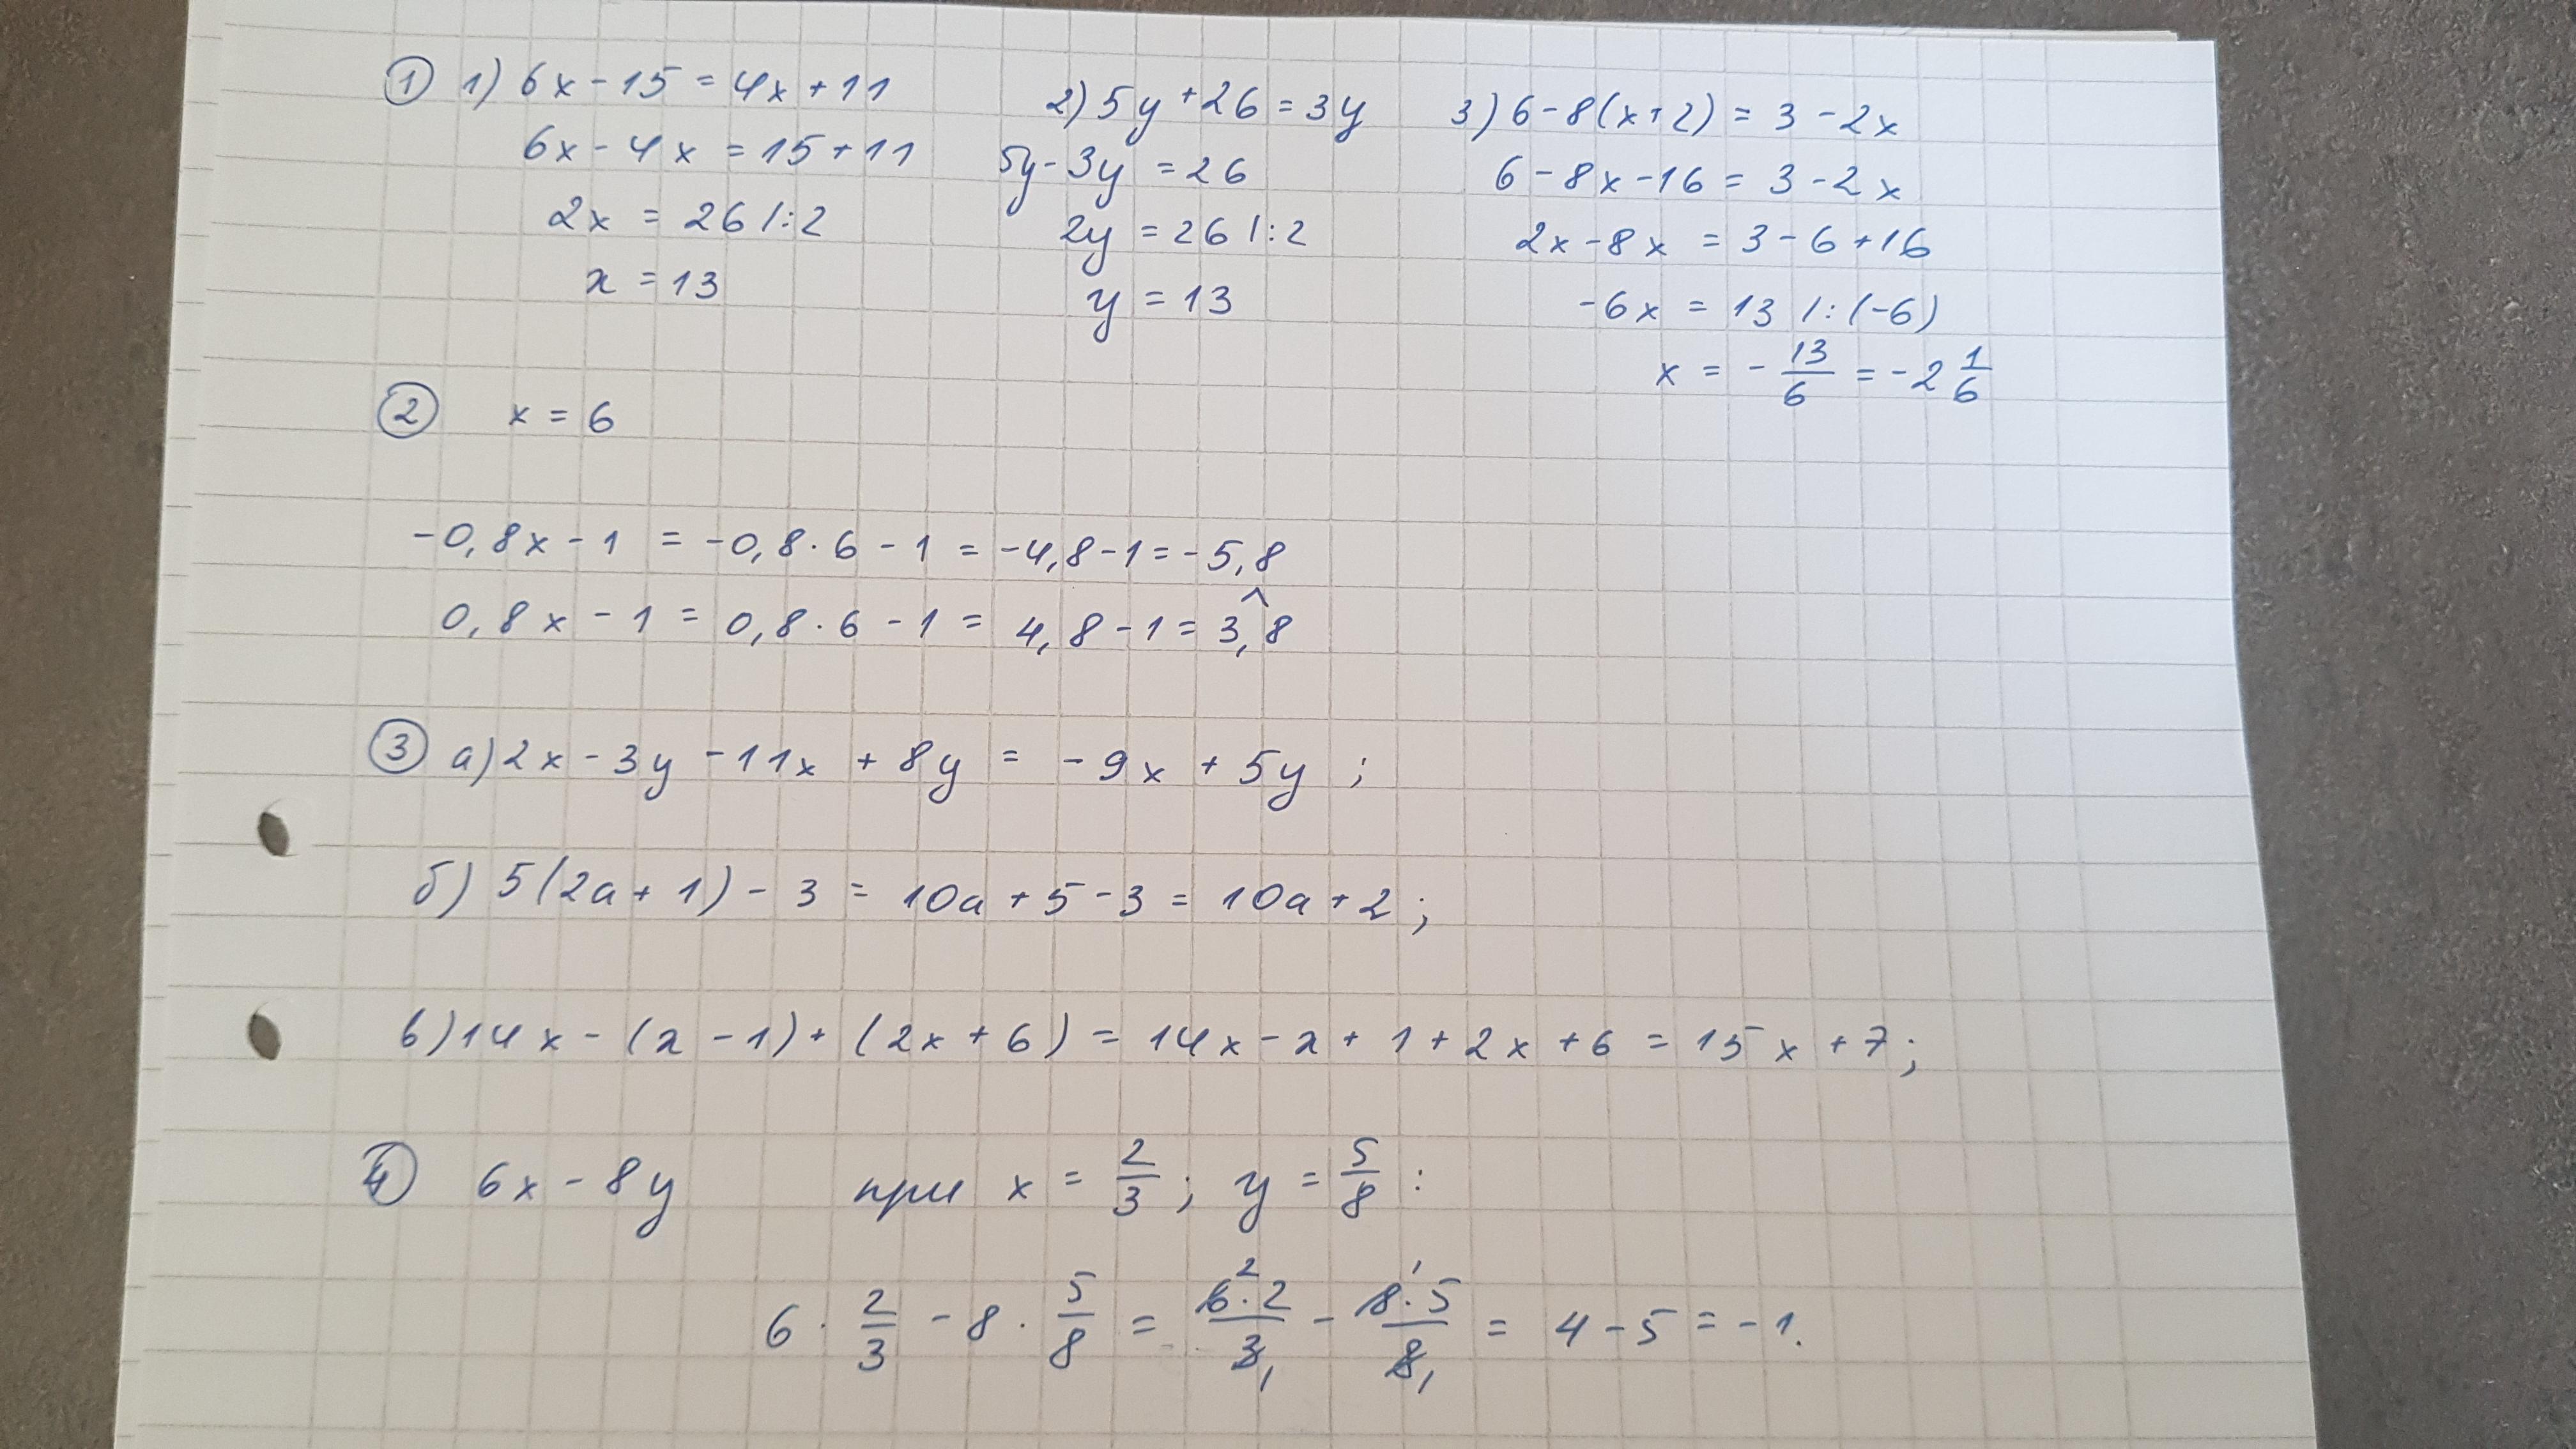 ① 1) 6x - 15 = 4x + 11
6x - 4x = 15 + 11
2x = 26 /:2
x = 13
2) 5y + 26 = 3y
5y - 3y = 26
2y = 26 /:2
y = 13
3) 6 - 8(x + 2) = 3 - 2x
6 - 8x - 16 = 3 - 2x
2x - 8x = 3 - 6 + 16
-6x = 13 /:(-6)
x = - 13/6 = -2 1/6
② x = 6
-0,8x - 1 = -0,8 · 6 - 1 = -4,8 - 1 = -5,8
^
0,8x - 1 = 0,8 · 6 - 1 = 4,8 - 1 = 3,8
③ а) 2x - 3y - 11x + 8y = -9x + 5y ;
б) 5(2a + 1) - 3 = 10a + 5 - 3 = 10a + 2 ;
в) 14x - (x - 1) + (2x + 6) = 14x - x + 1 + 2x + 6 = 15x + 7 ;
④ 6x - 8y при x = 2/3 ; y = 5/8 :
6 · 2/3 - 8 · 5/8 = 6² · 2/3₁ - 8¹ · 5/8₁ = 4 - 5 = -1.